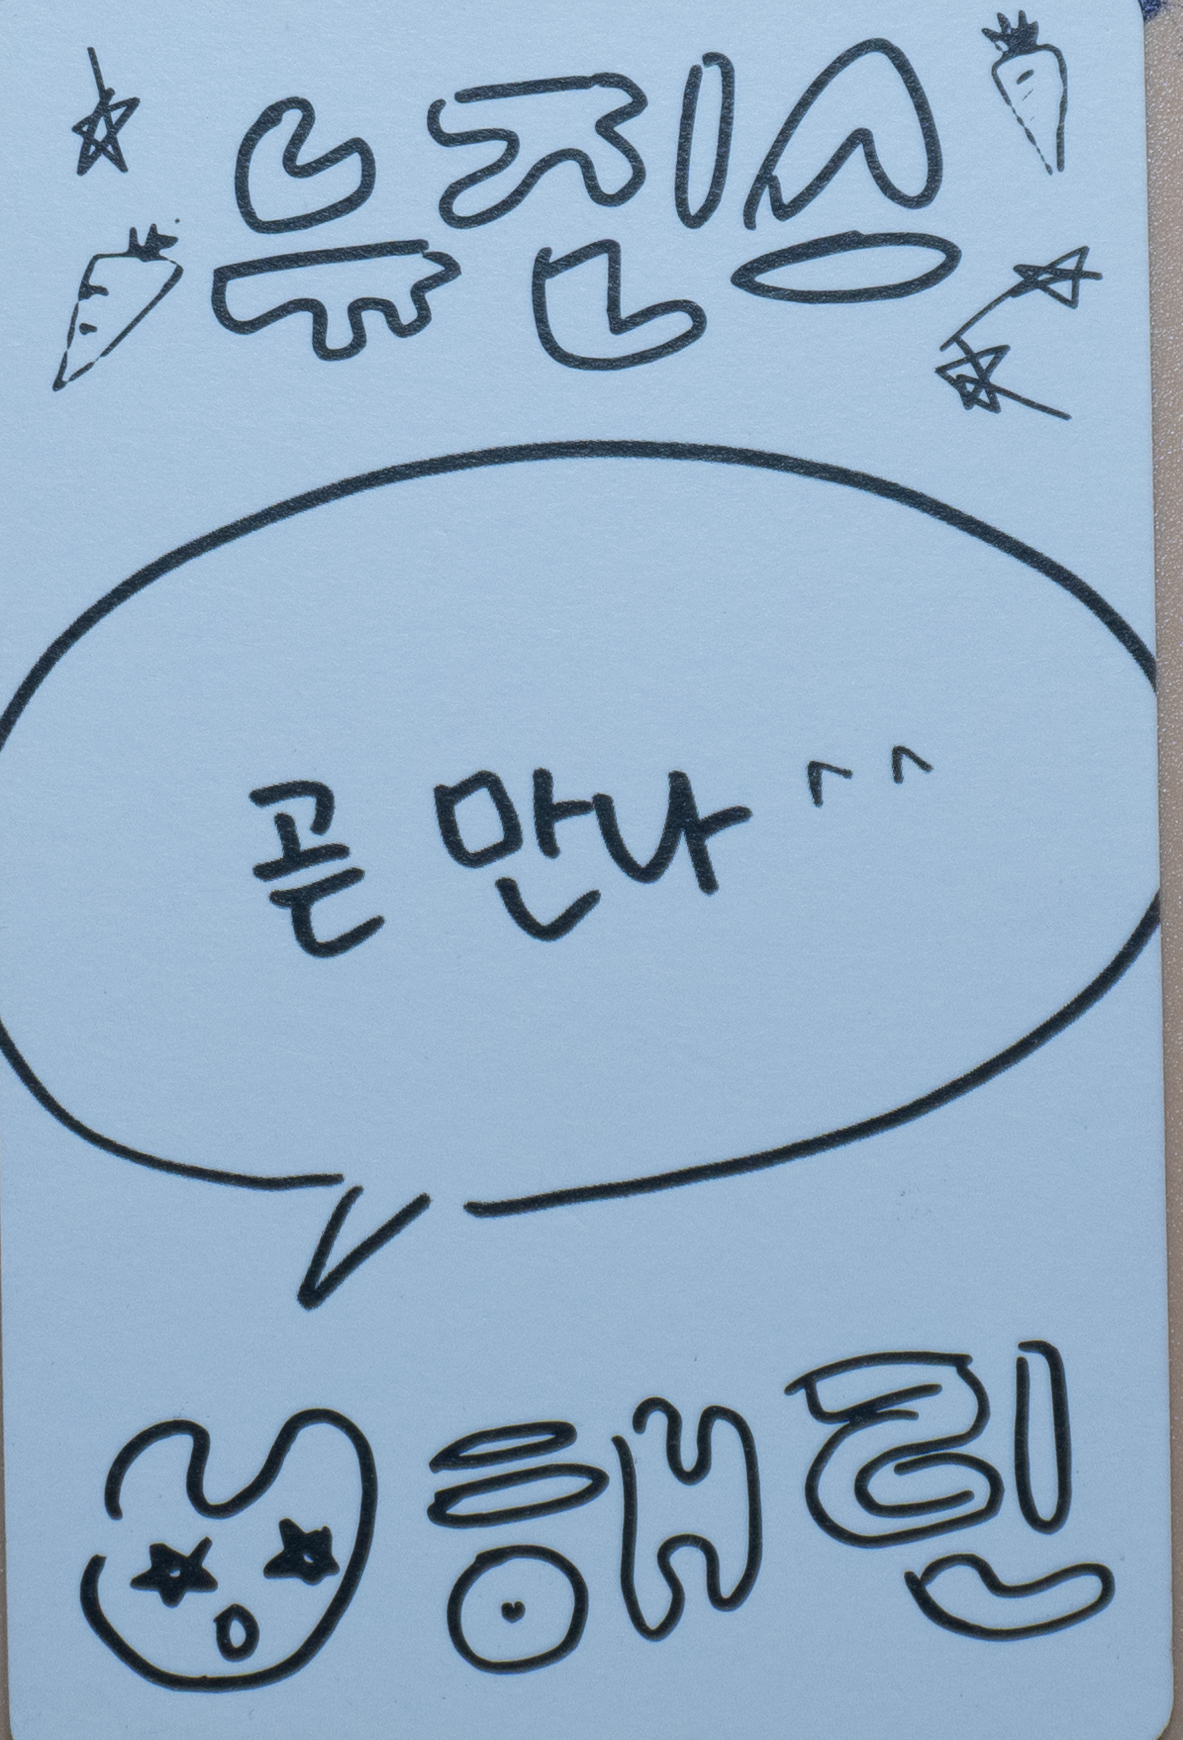 뉴진스
곧 만나 ^^
해린